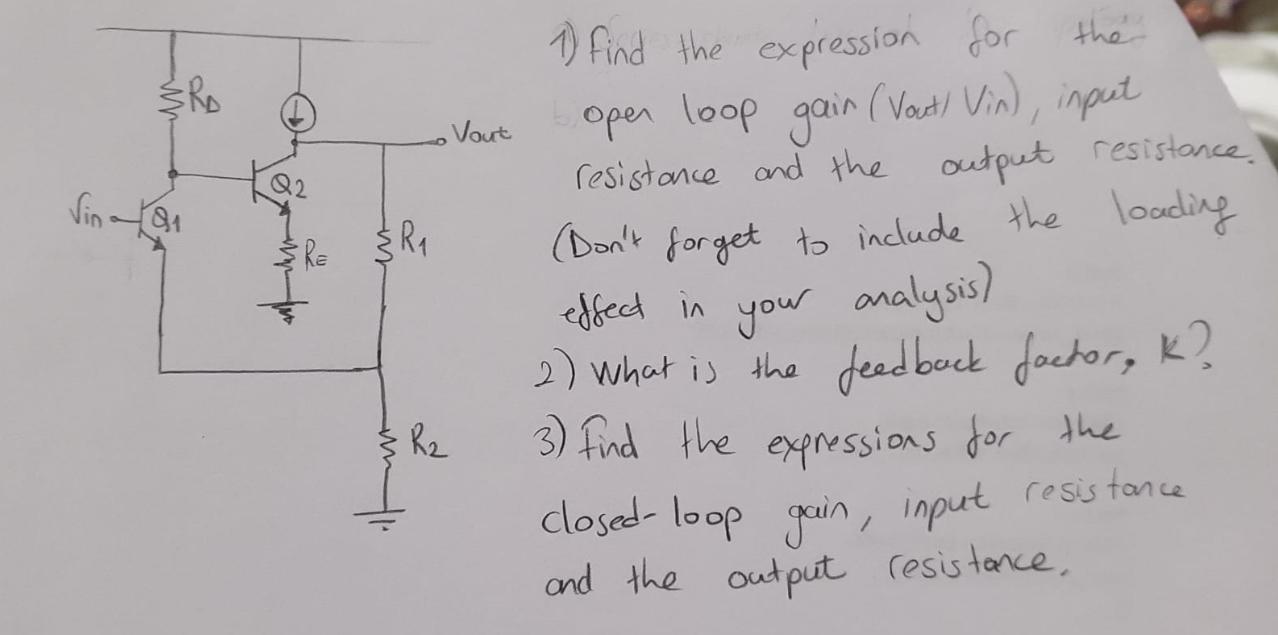 RD
Vout
Q2
Vin
Q1
RE
R1
R2
1) Find the expression for the
open loop gain (Vout/ Vin), input
resistance and the output resistance.
(Don't forget to include the loading
effect in your analysis)
2) What is the feedback factor, K?
3) Find the expressions for the
closed-loop gain, input resistance
and the output resistance.